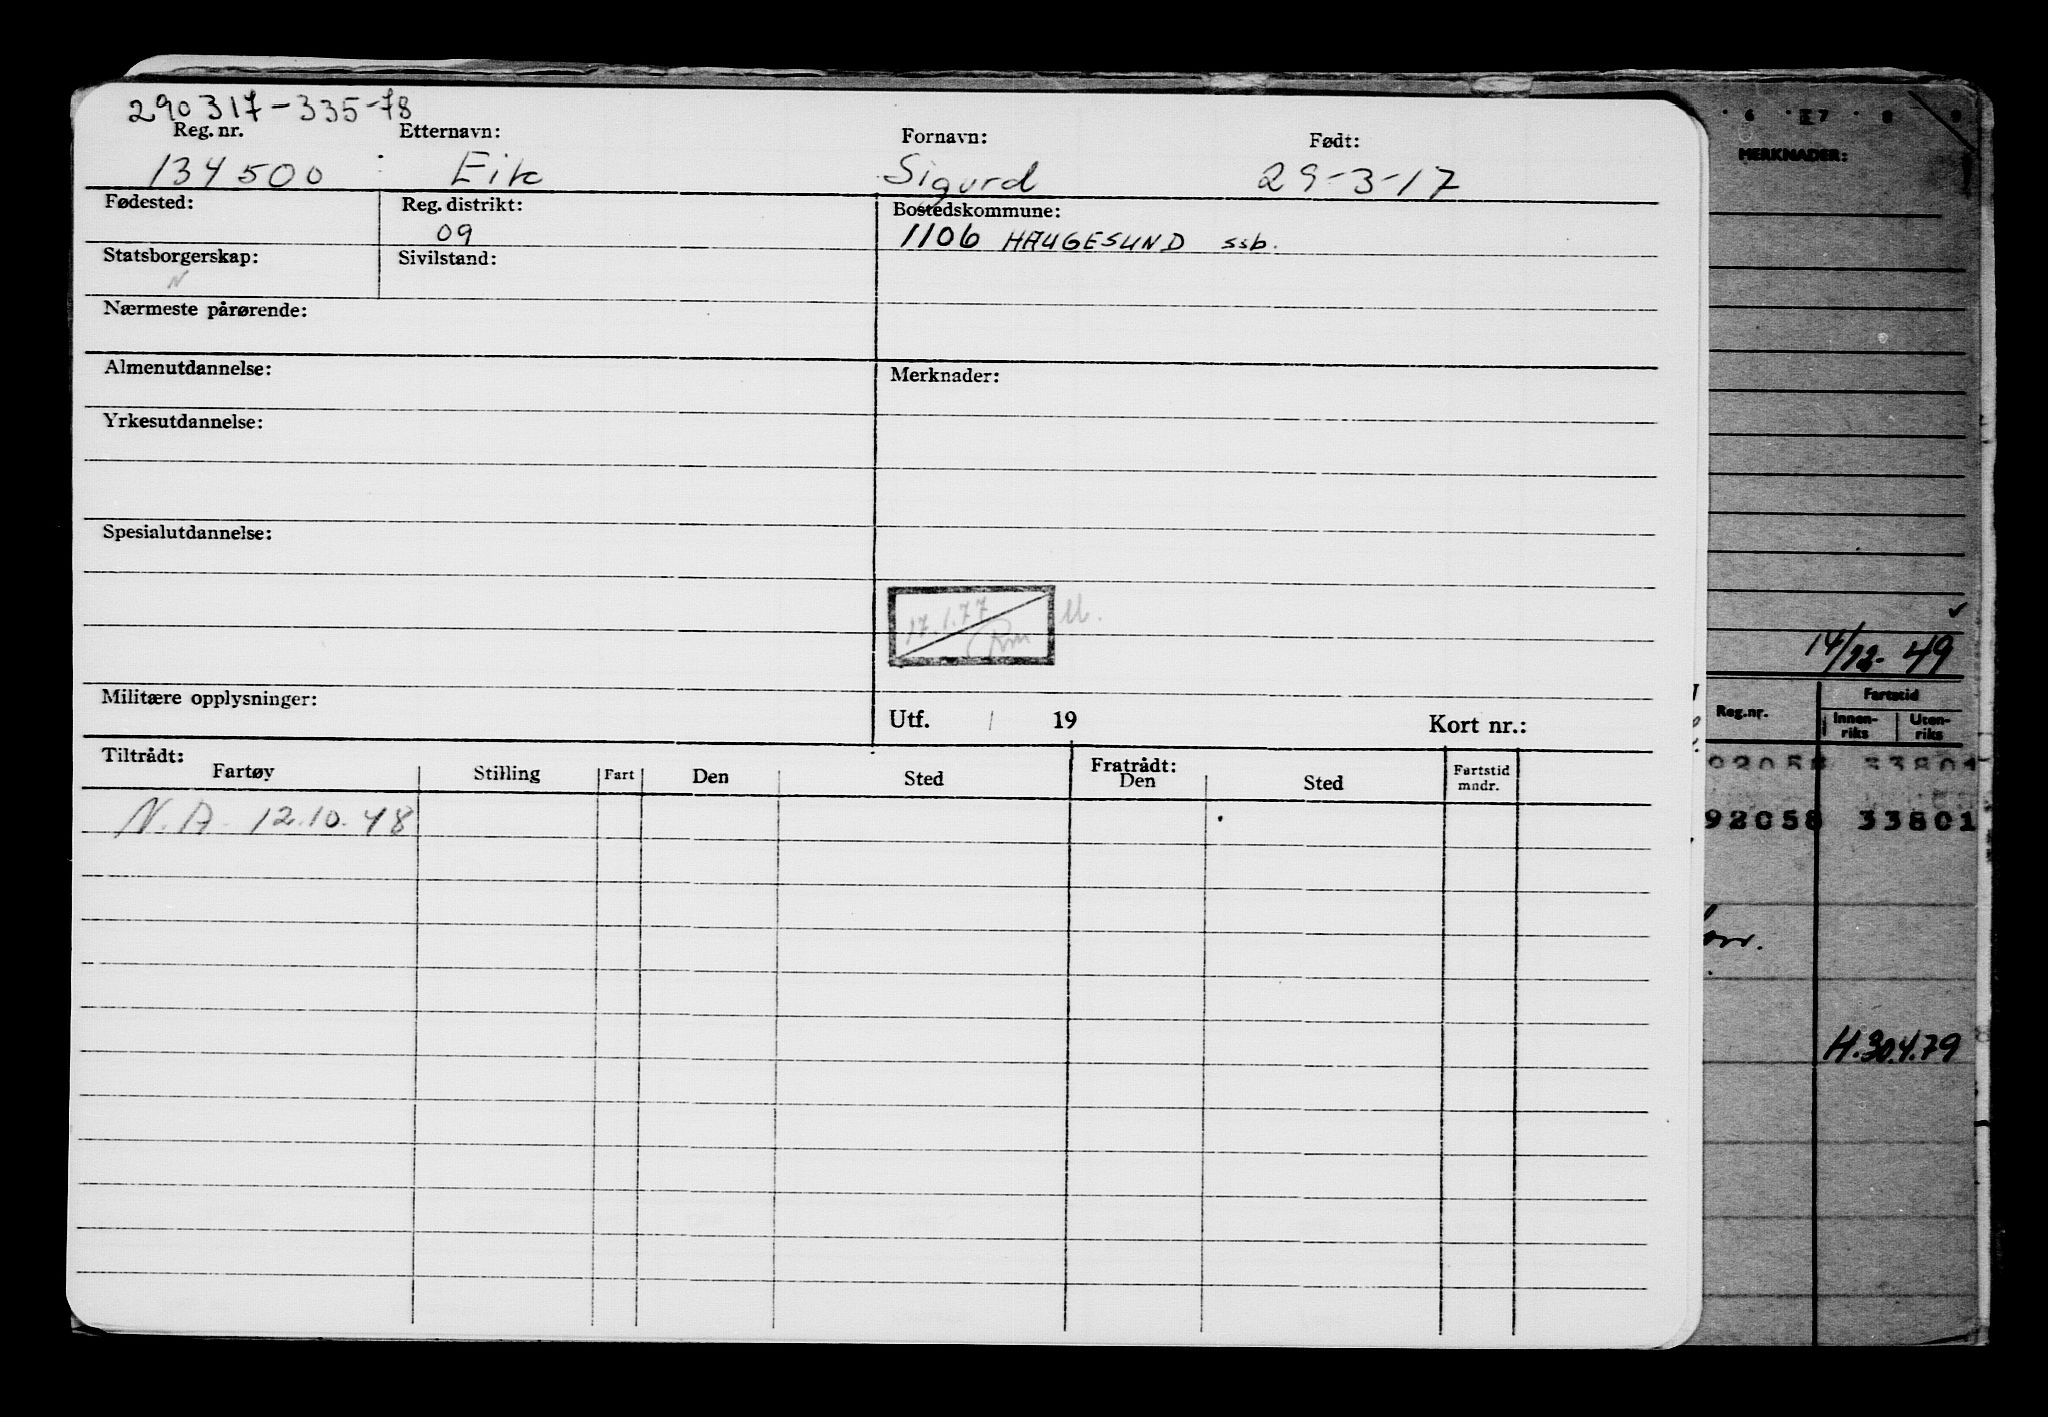 290317-335-78
Reg. nr. Etternavn: Fornavn: Født:
134500 Eik Sigurd 29-3-17
Fødested: Reg. distrikt: Bostedskommune:
09 1106 HAUGESUND ssb.
Statsborgerskap: Sivilstand:
N
Nærmeste pårørende:
Almenutdannelse: Merknader:
Yrkesutdannelse:
Spesialutdannelse:
17.1.77
Militære opplysninger:
Utf. / 19 Kort nr.:
Tiltrådt: Fratrådt:
Fartøy Stilling Fart Den Sted Den Sted Fartstid mndr.
N.A. 12.10.48
6 7 8 9
MERKNADER:
14/12-49
Reg.nr. Fartstid
Innen-riks Uten-riks
92058 33801
92058 33801
H.30.4.79